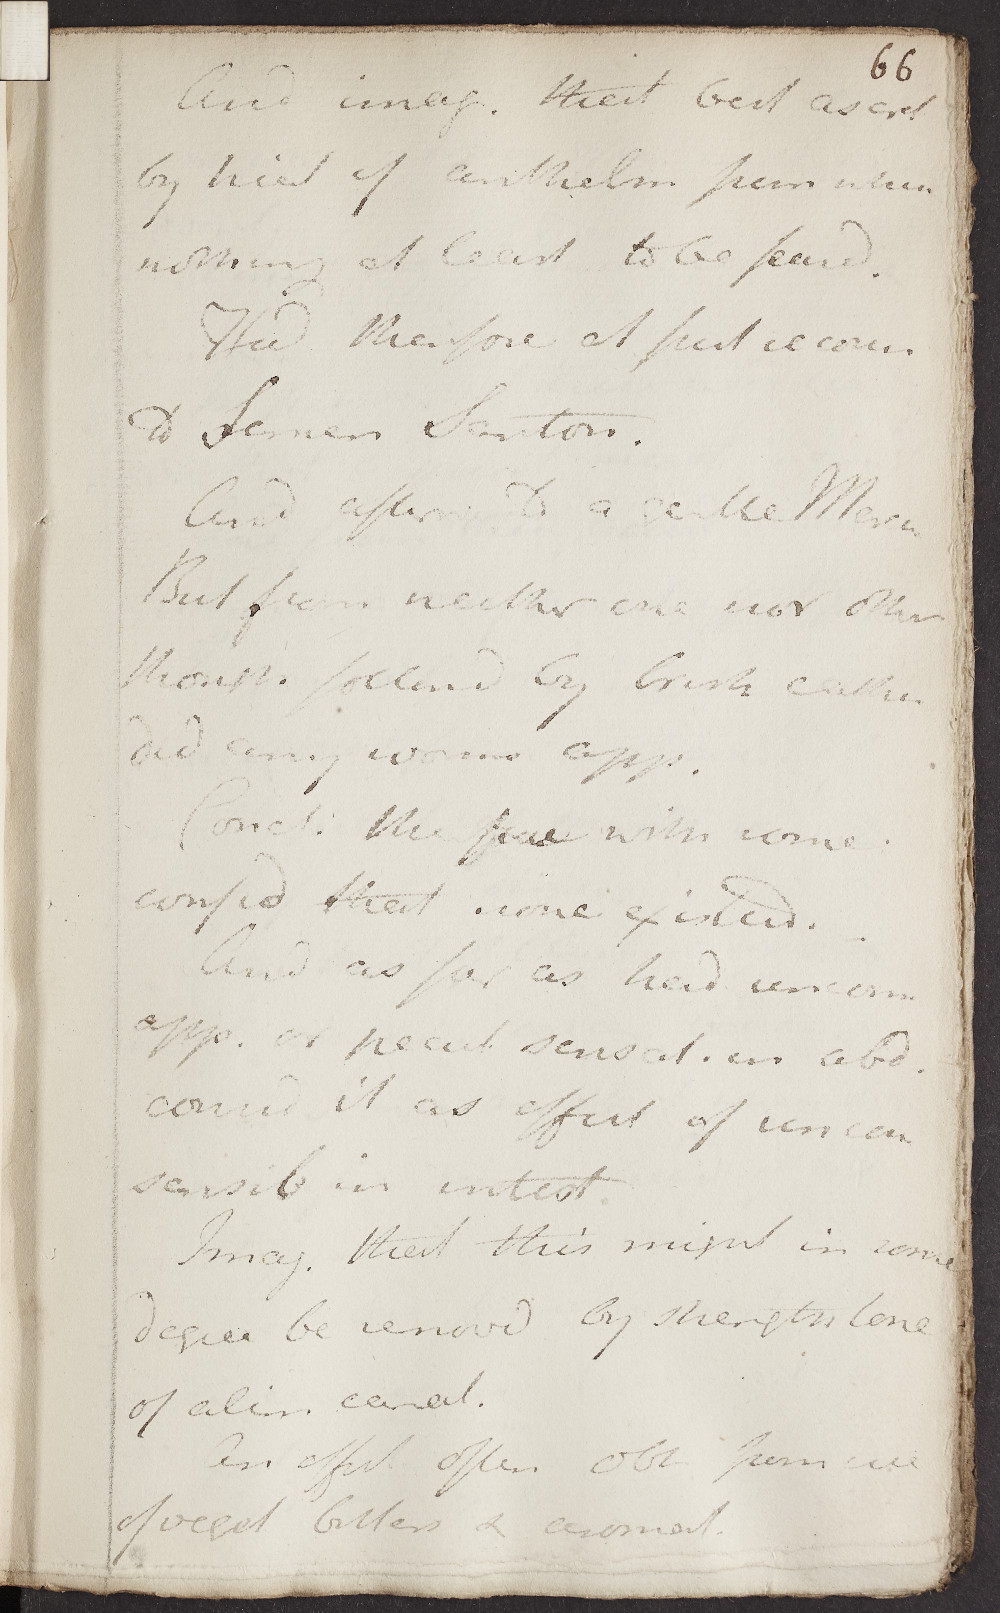 66
And imag. that best ascert
by trial of anthelm from whom
nothing at least to be feard.
Had therefore at first recour
to Semen Santon.
And afterw to a gentle Mercu
But from neither one nor other
though. followd by brisk cathar
did any worms app.
Concl. therefore with some
confid that none existed.
And as far as had uncom
app. or pecul sensat. in abd.
considd it as effect of uncom
sensib in intest.
Imag. that this might in some
degree be removd by strength tone
of alim canal.
An effect often obt from use
of veget bitters & aromat.